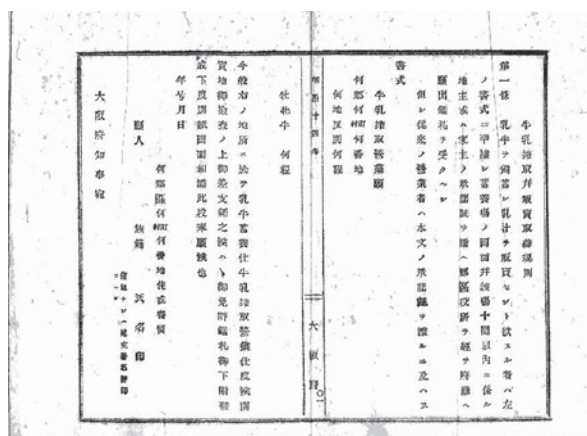 牛乳搾取并販賣取締規則
第一條 乳牛ヲ飼畜シ乳汁ヲ販賣セント欲スル者ハ左
ノ書式ニ準據シ蓄養場ノ圖面并該場十間以内ニ係ル
地主或ハ家主ノ承認証ヲ添ヘ郡區役所ヲ經テ府廳ヘ
願出鑑札ヲ受クヘシ
但シ從來ノ營業者ハ本文ノ承認証ヲ添ルニ及ハス
書式
牛乳搾取營業願
何郡何町村何番地
何地反別何程
明治十四年
大阪府
牡牝牛 何程
今般右ノ地所ニ於テ乳牛蓄養仕牛乳搾取營業仕度候間
實地御檢査ノ上御差支無之候ハヽ御免許鑑札御下附被
成下度別紙圖面相添此段奉願候也
年号月日
何郡區何町村何番地住或寄留
願人 族籍 氏名印
大阪府知事宛